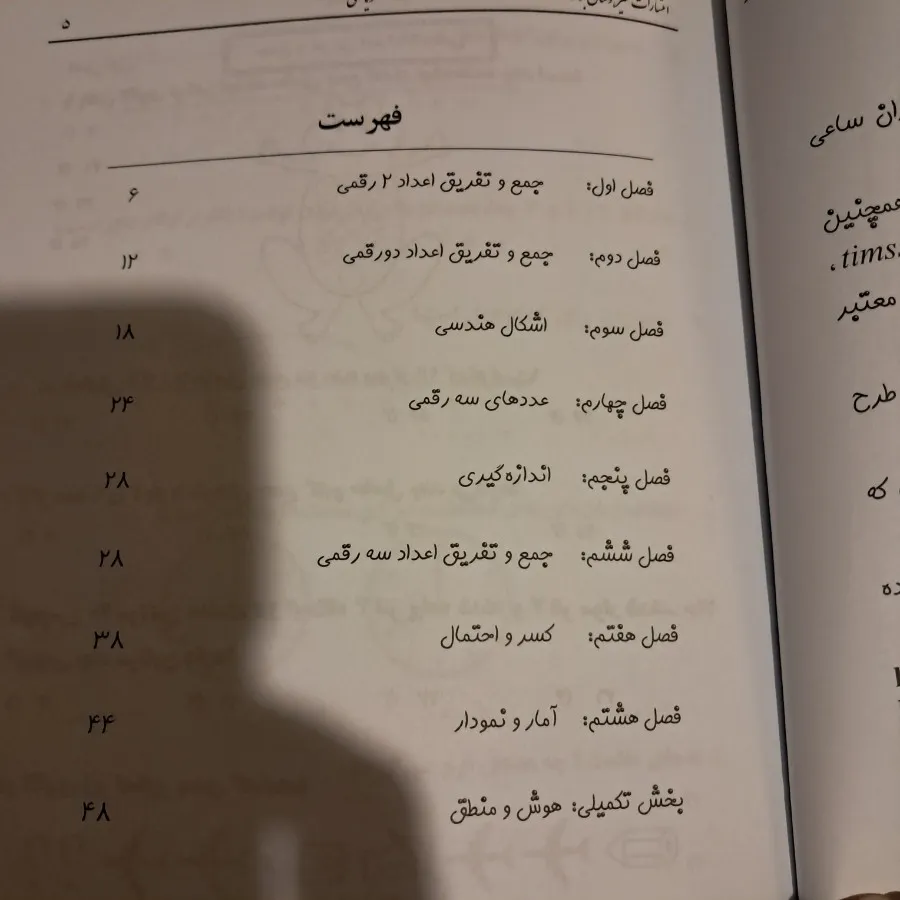 ۵
فهرست
فصل اول: جمع و تفریق اعداد ۲ رقمی ۶
فصل دوم: جمع و تفریق اعداد دورقمی ۱۲
فصل سوم: اشکال هندسی ۱۸
فصل چهارم: عددهای سه رقمی ۲۴
فصل پنجم: اندازه‌گیری ۲۸
فصل ششم: جمع و تفریق اعداد سه رقمی ۲۸
فصل هفتم: کسر و احتمال ۳۸
فصل هشتم: آمار و نمودار ۴۴
بخش تکمیلی: هوش و منطق ۴۸
ساعی
همچنین
timss،
معتبر
طرح
که